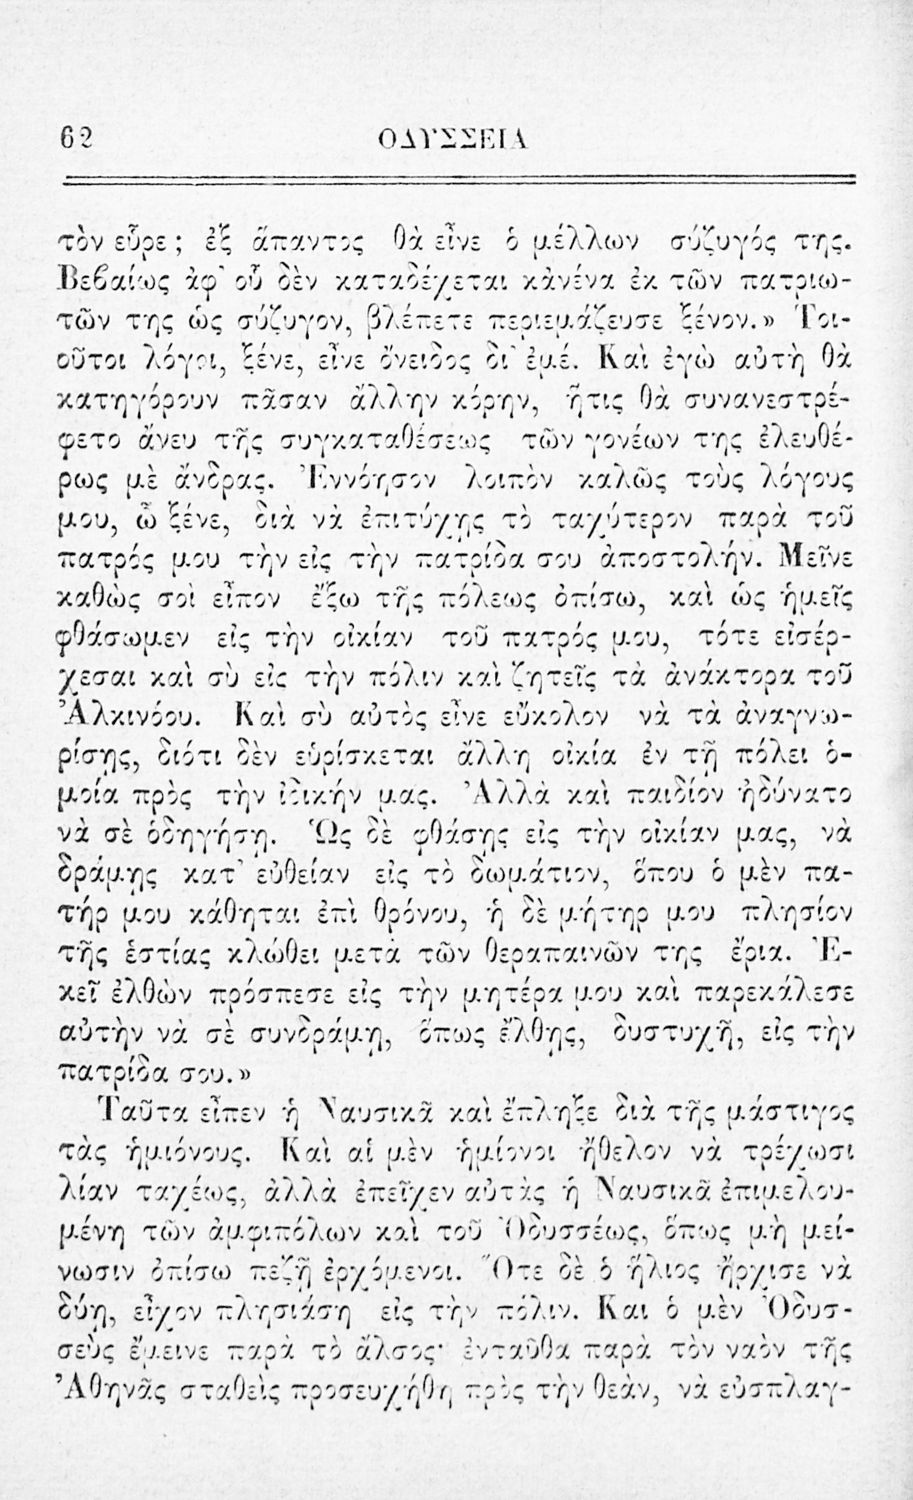 62 ΟΔΥΣΣΕΙΑ
τὸν εὗρε; ἐξ ἅπαντος θὰ εἶνε ὁ μέλλων σύζυγός της.
Βεβαίως ἀφ' οὗ δὲν καταδέχεται κἀνένα ἐκ τῶν πατριω-
τῶν της ὡς σύζυγον, βλέπετε περιεμάζευσε ξένον.» Τοι-
οῦτοι λόγοι, ξένε, εἶνε ὄνειδος δι' ἐμέ. Καὶ ἐγὼ αὐτὴ θὰ
κατηγόρουν πᾶσαν ἄλλην κόρην, ἥτις θὰ συνανεστρέ-
φετο ἄνευ τῆς συγκαταθέσεως τῶν γονέων της ἐλευθέ-
ρως μὲ ἄνδρας. Ἐννόησον λοιπὸν καλῶς τοὺς λόγους
μου, ὦ ξένε, διὰ νὰ ἐπιτύχῃς τὸ ταχύτερον παρὰ τοῦ
πατρός μου τὴν εἰς τὴν πατρίδα σου ἀποστολήν. Μεῖνε
καθὼς σοὶ εἶπον ἔξω τῆς πόλεως ὀπίσω, καὶ ὡς ἡμεῖς
φθάσωμεν εἰς τὴν οἰκίαν τοῦ πατρός μου, τότε εἰσέρ-
χεσαι καὶ σὺ εἰς τὴν πόλιν καὶ ζητεῖς τὰ ἀνάκτορα τοῦ
Ἀλκινόου. Καὶ σὺ αὐτὸς εἶνε εὔκολον νὰ τὰ ἀναγνω-
ρίσῃς, διότι δὲν εὑρίσκεται ἄλλη οἰκία ἐν τῇ πόλει ὁ-
μοία πρὸς τὴν ἰδικήν μας. Ἀλλὰ καὶ παιδίον ἠδύνατο
νὰ σὲ ὁδηγήσῃ. Ὡς δὲ φθάσῃς εἰς τὴν οἰκίαν μας, νὰ
δράμῃς κατ' εὐθείαν εἰς τὸ δωμάτιον, ὅπου ὁ μὲν πα-
τήρ μου κάθηται ἐπὶ θρόνου, ἡ δὲ μήτηρ μου πλησίον
τῆς ἑστίας κλώθει μετὰ τῶν θεραπαινῶν της ἔρια. Ἐ-
κεῖ ἐλθὼν πρόσπεσε εἰς τὴν μητέρα μου καὶ παρεκάλεσε
αὐτὴν νὰ σὲ συνδράμῃ, ὅπως ἔλθῃς, δυστυχῆ, εἰς τὴν
πατρίδα σου.»
Ταῦτα εἶπεν ἡ Ναυσικᾶ καὶ ἔπληξε διὰ τῆς μάστιγος
τὰς ἡμιόνους. Καὶ αἱ μὲν ἡμίονοι ἤθελον νὰ τρέχωσι
λίαν ταχέως, ἀλλὰ ἐπεῖχεν αὐτὰς ἡ Ναυσικᾶ ἐπιμελου-
μένη τῶν ἀμφιπόλων καὶ τοῦ Ὀδυσσέως, ὅπως μὴ μεί-
νωσιν ὀπίσω πεζῇ ἐρχόμενοι. Ὅτε δὲ ὁ ἥλιος ἤρχισε νὰ
δύῃ, εἶχον πλησιάσῃ εἰς τὴν πόλιν. Και ὁ μὲν Ὀδυσ-
σεὺς ἔμεινε παρὰ τὸ ἄλσος· ἐνταῦθα παρὰ τὸν ναὸν τῆς
Ἀθηνᾶς σταθεὶς προσευχήθη πρὸς τὴν θεὰν, νὰ εὐσπλαγ-